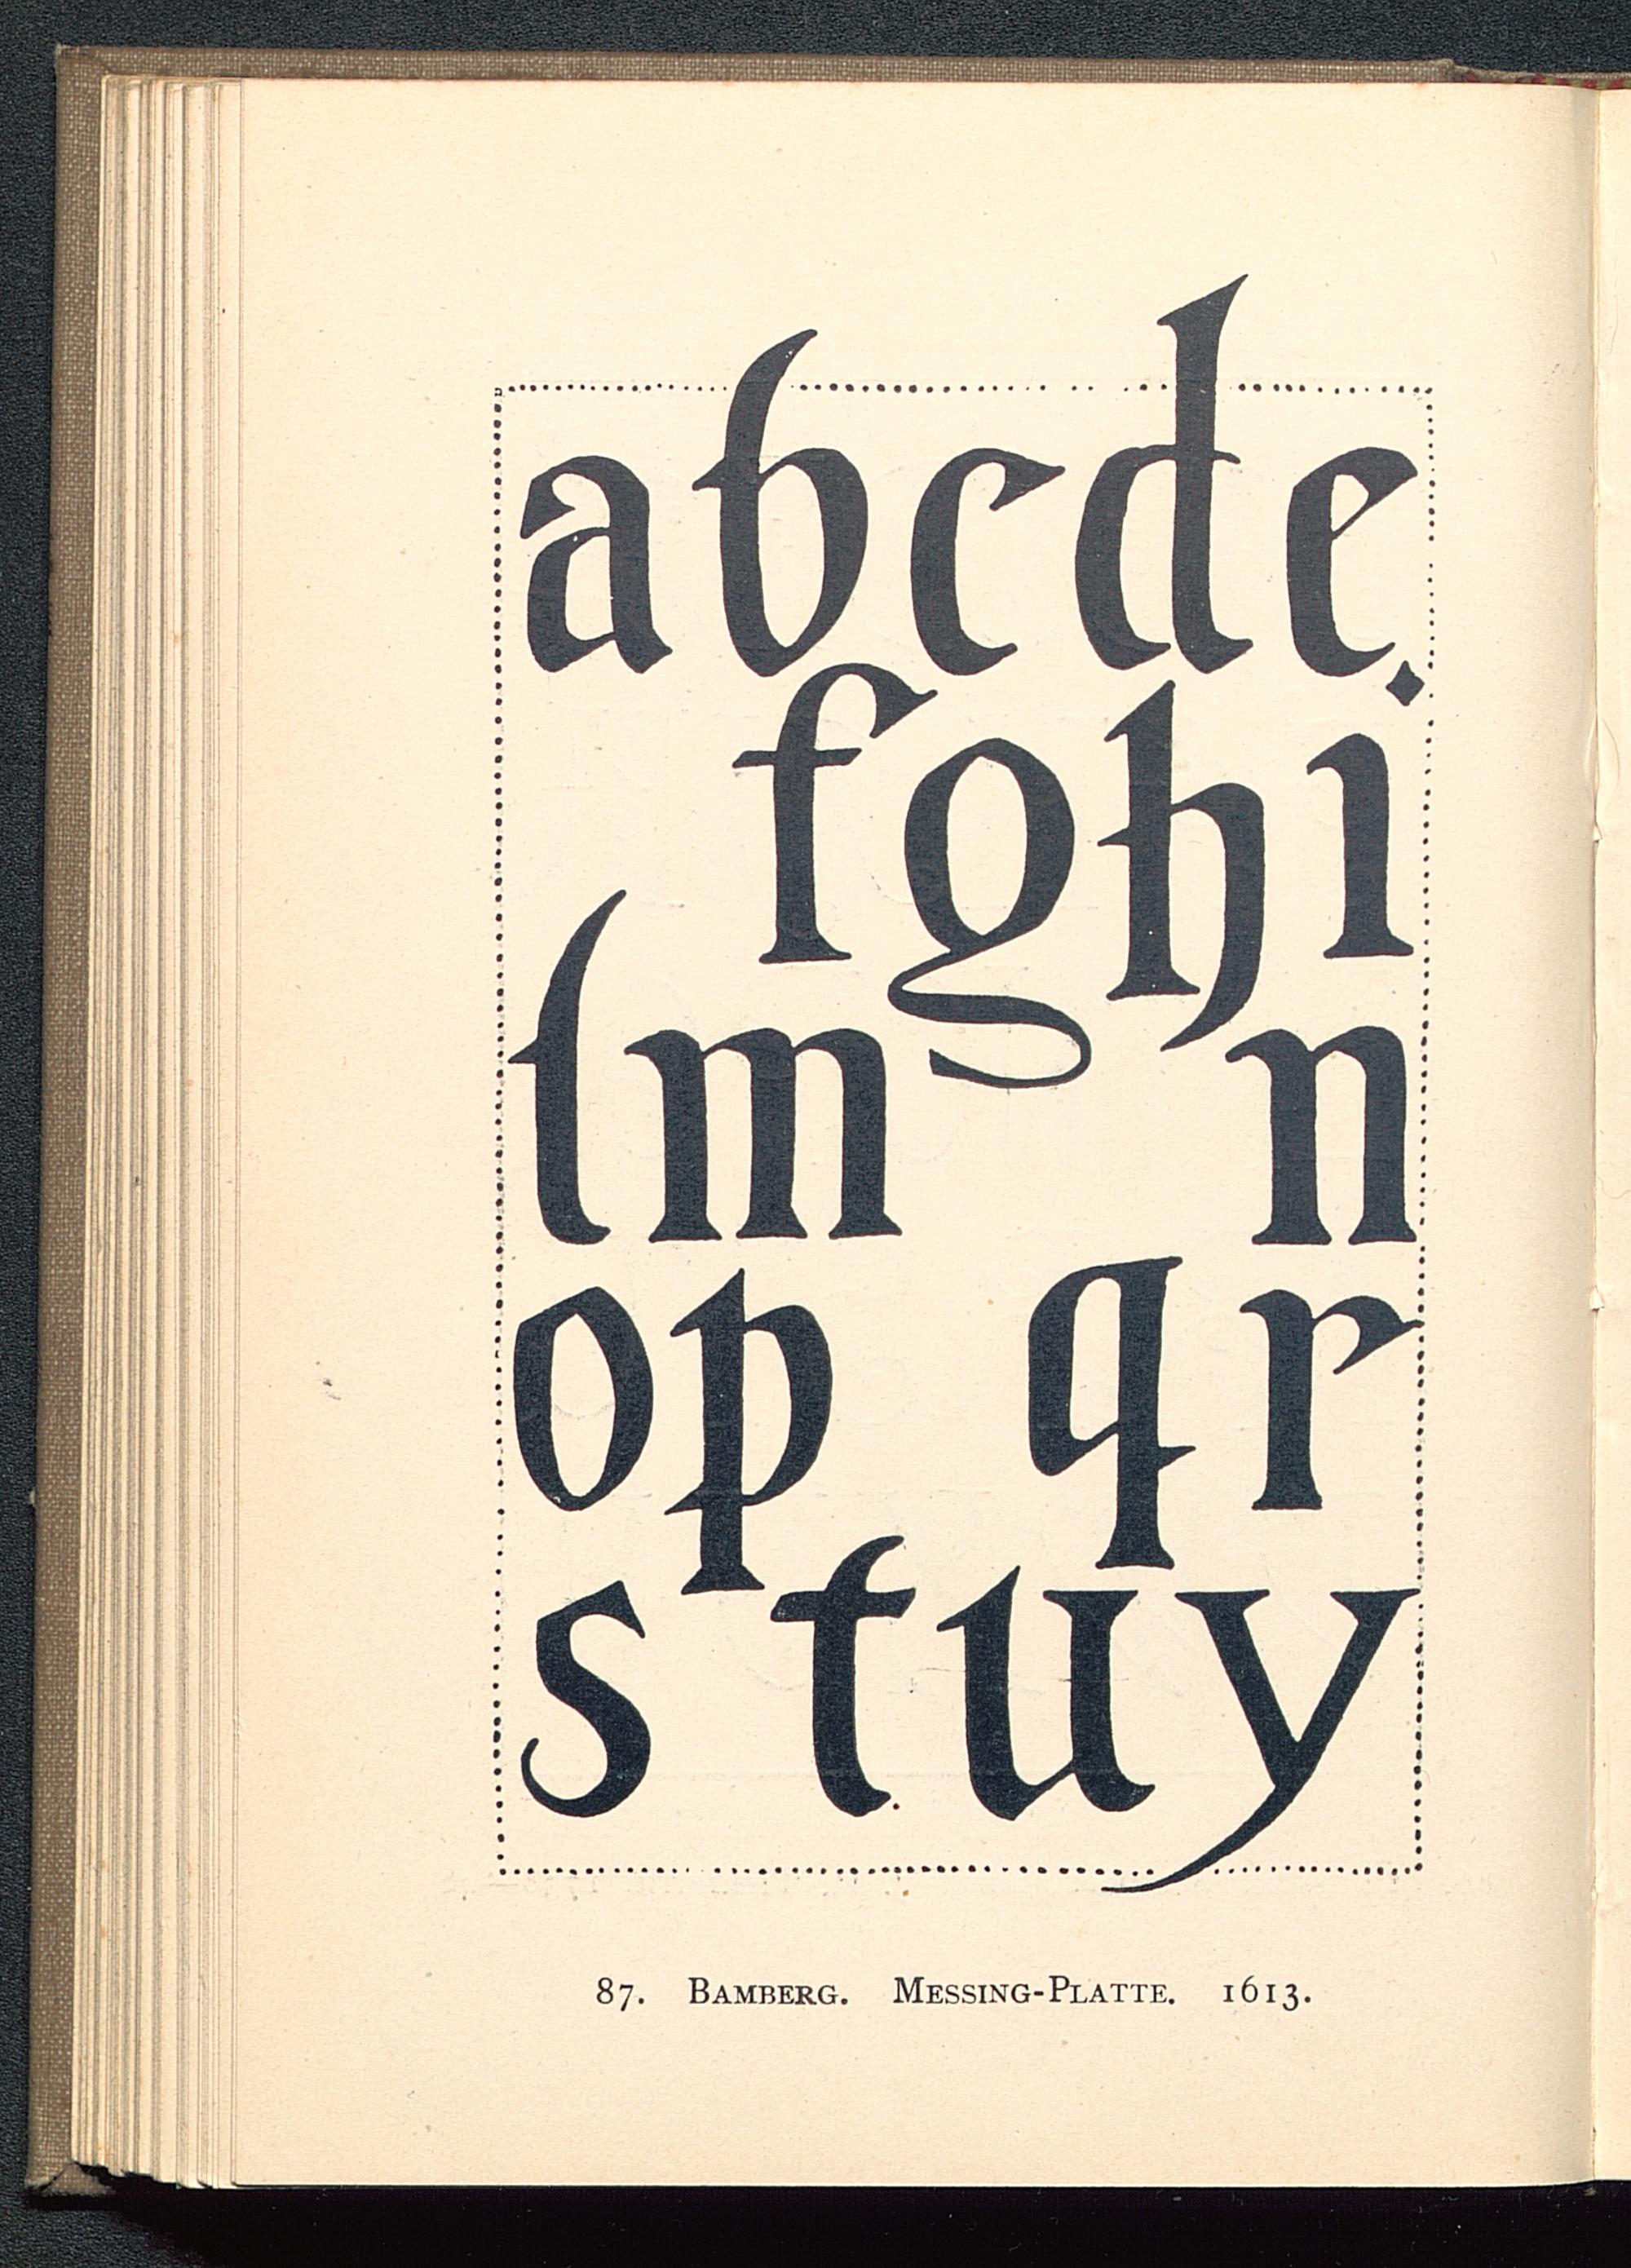 abcde
fghi
lm n
op qr
stuy
87. BAMBERG. MESSING-PLATTE. 1613.